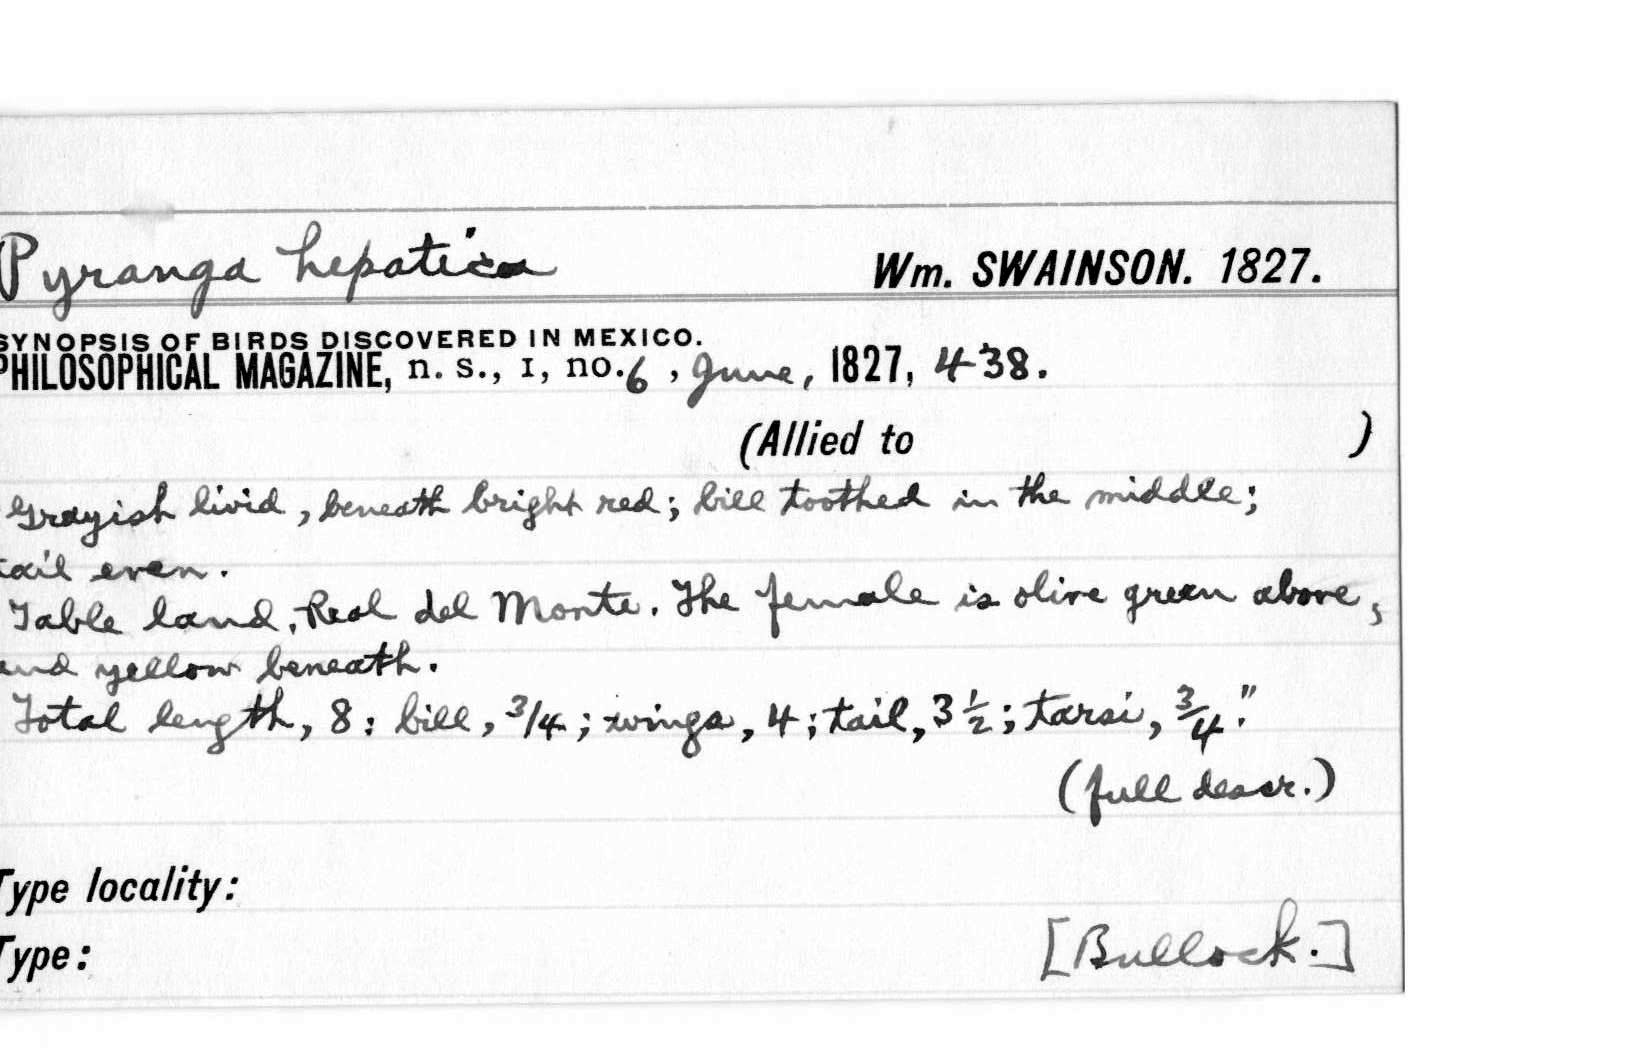 Pyranga hepatica Wm. SWAINSON. 1827.
SYNOPSIS OF BIRDS DISCOVERED IN MEXICO.
PHILOSOPHICAL MAGAZINE, n. s., I, no. 6, June, 1827, 438.
(Allied to )
Grayish livid, beneath bright red; bill toothed in the middle;
tail even.
Table land, Real del Monte. The female is olive green above,
and yellow beneath.
Total length, 8: bill, 3/4; wings, 4; tail, 3 1/2; tarsi, 3/4."
(full descr.)
Type locality:
Type: [Bullock.]